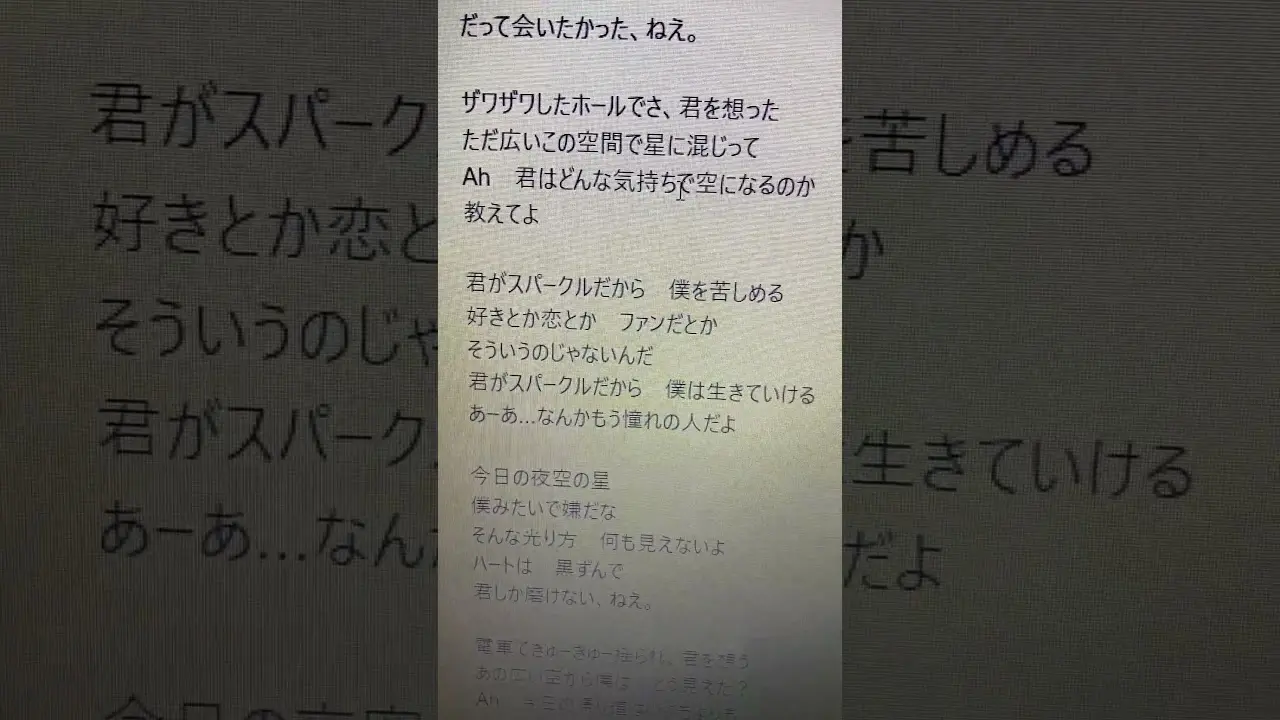 だって会いたかった、ねえ。
ザワザワしたホールでさ、君を想った
ただ広いこの空間で星に混じって
Ah　君はどんな気持ちで空になるのか
教えてよ
君がスパークルだから　僕を苦しめる
好きとか恋とか　ファンだとか
そういうのじゃないんだ
君がスパークルだから　僕は生きていける
あーあ…なんかもう憧れの人だよ
今日の夜空の星
僕みたいで嫌だな
そんな光り方　何も見えないよ
ハートは　黒ずんで
君しか磨けない、ねえ。
電車できゅーきゅー揺られ、君を想う
あの広い空から僕は　どう見えた？
Ah